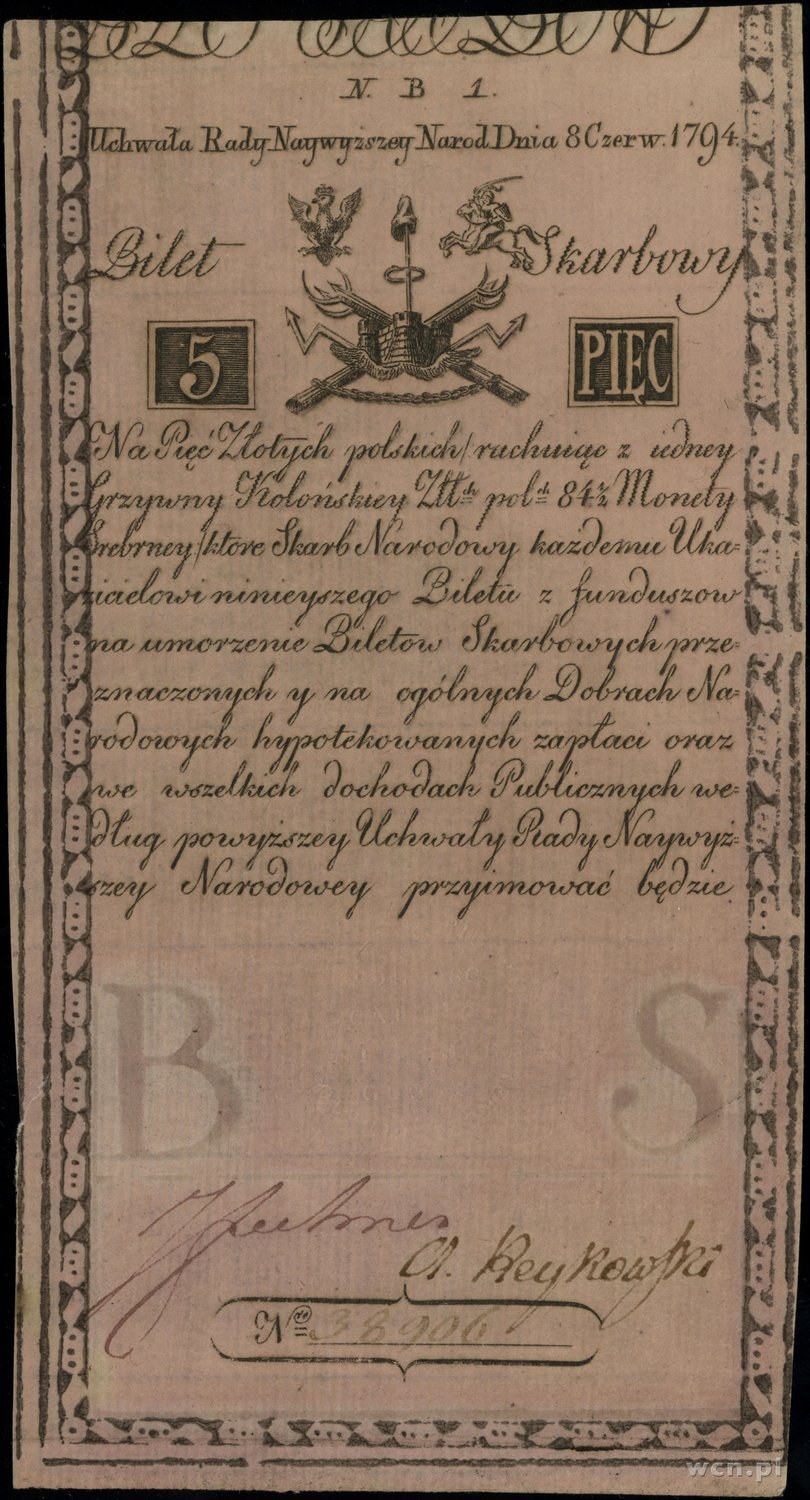 N. B 1.
Uchwała Rady Naywyższey Narod. Dnia 8 Czerw. 1794.
Bilet Skarbowy
5 PIĘC
Na Pięć Złotych polskich/rachuiąc z iedney
Grzywny Kolońskiey Złt:ch pol:ch 84½ Monety
Srebrney/które Skarb Narodowy każdemu Uka=
zicielowi ninieyszego Biletu z funduszow
na umorzenie Biletow Skarbowych prze=
znaczonych y na ogólnych Dobrach Na=
rodowych hypotekowanych zapłaci oraz
we wszelkich dochodach Publicznych we=
dług powyższey Uchwały Rady Naywyż=
szey Narodowey przyimować będzie
B S
A. Reykowski
N:ro 38906
wcn.pl